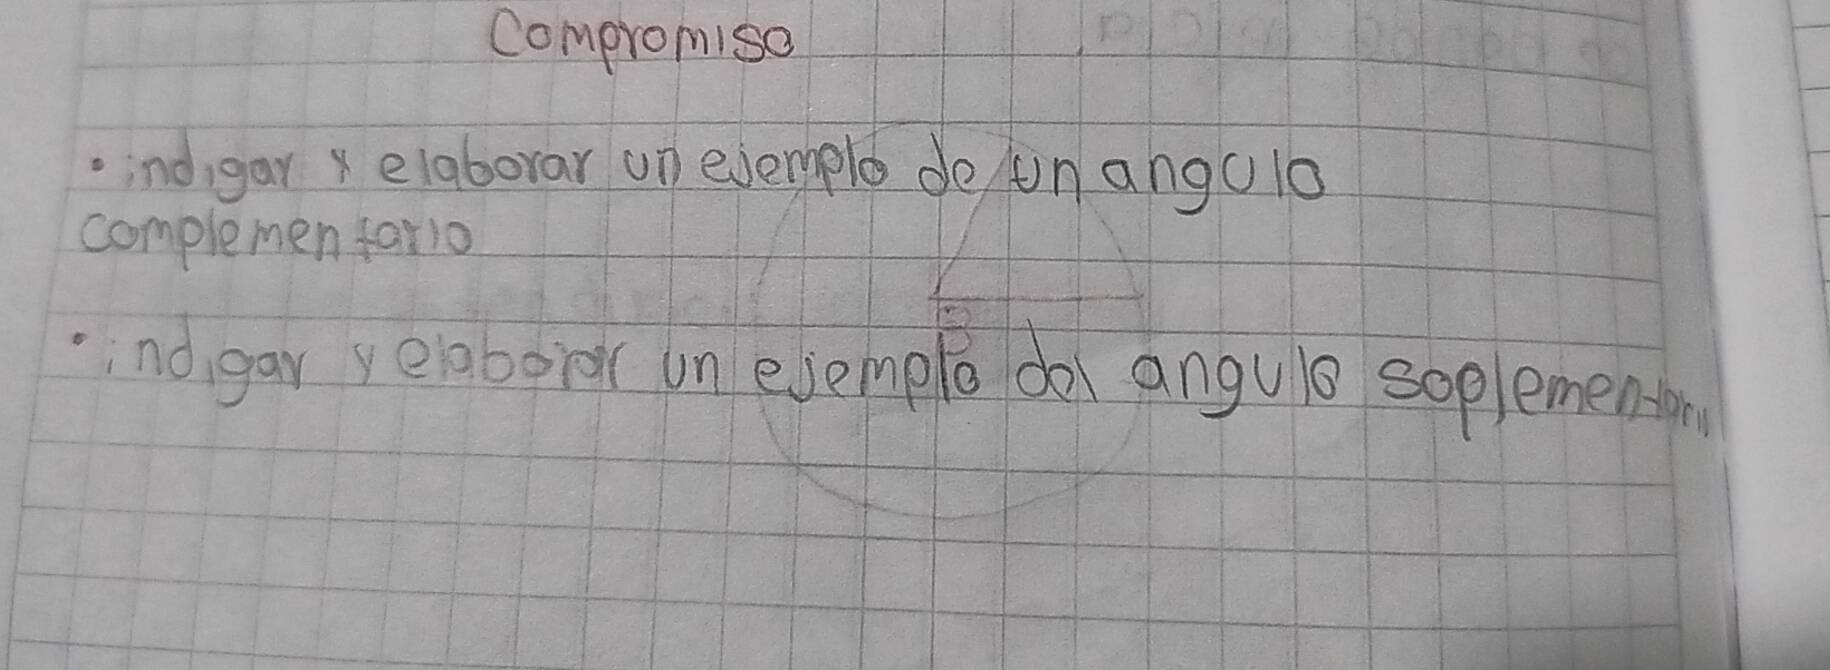 Compromiso
• indigar y elaborar un ejemplo de un angulo
complementario
• indigar y elaborar un ejemplo del angulo soplementari